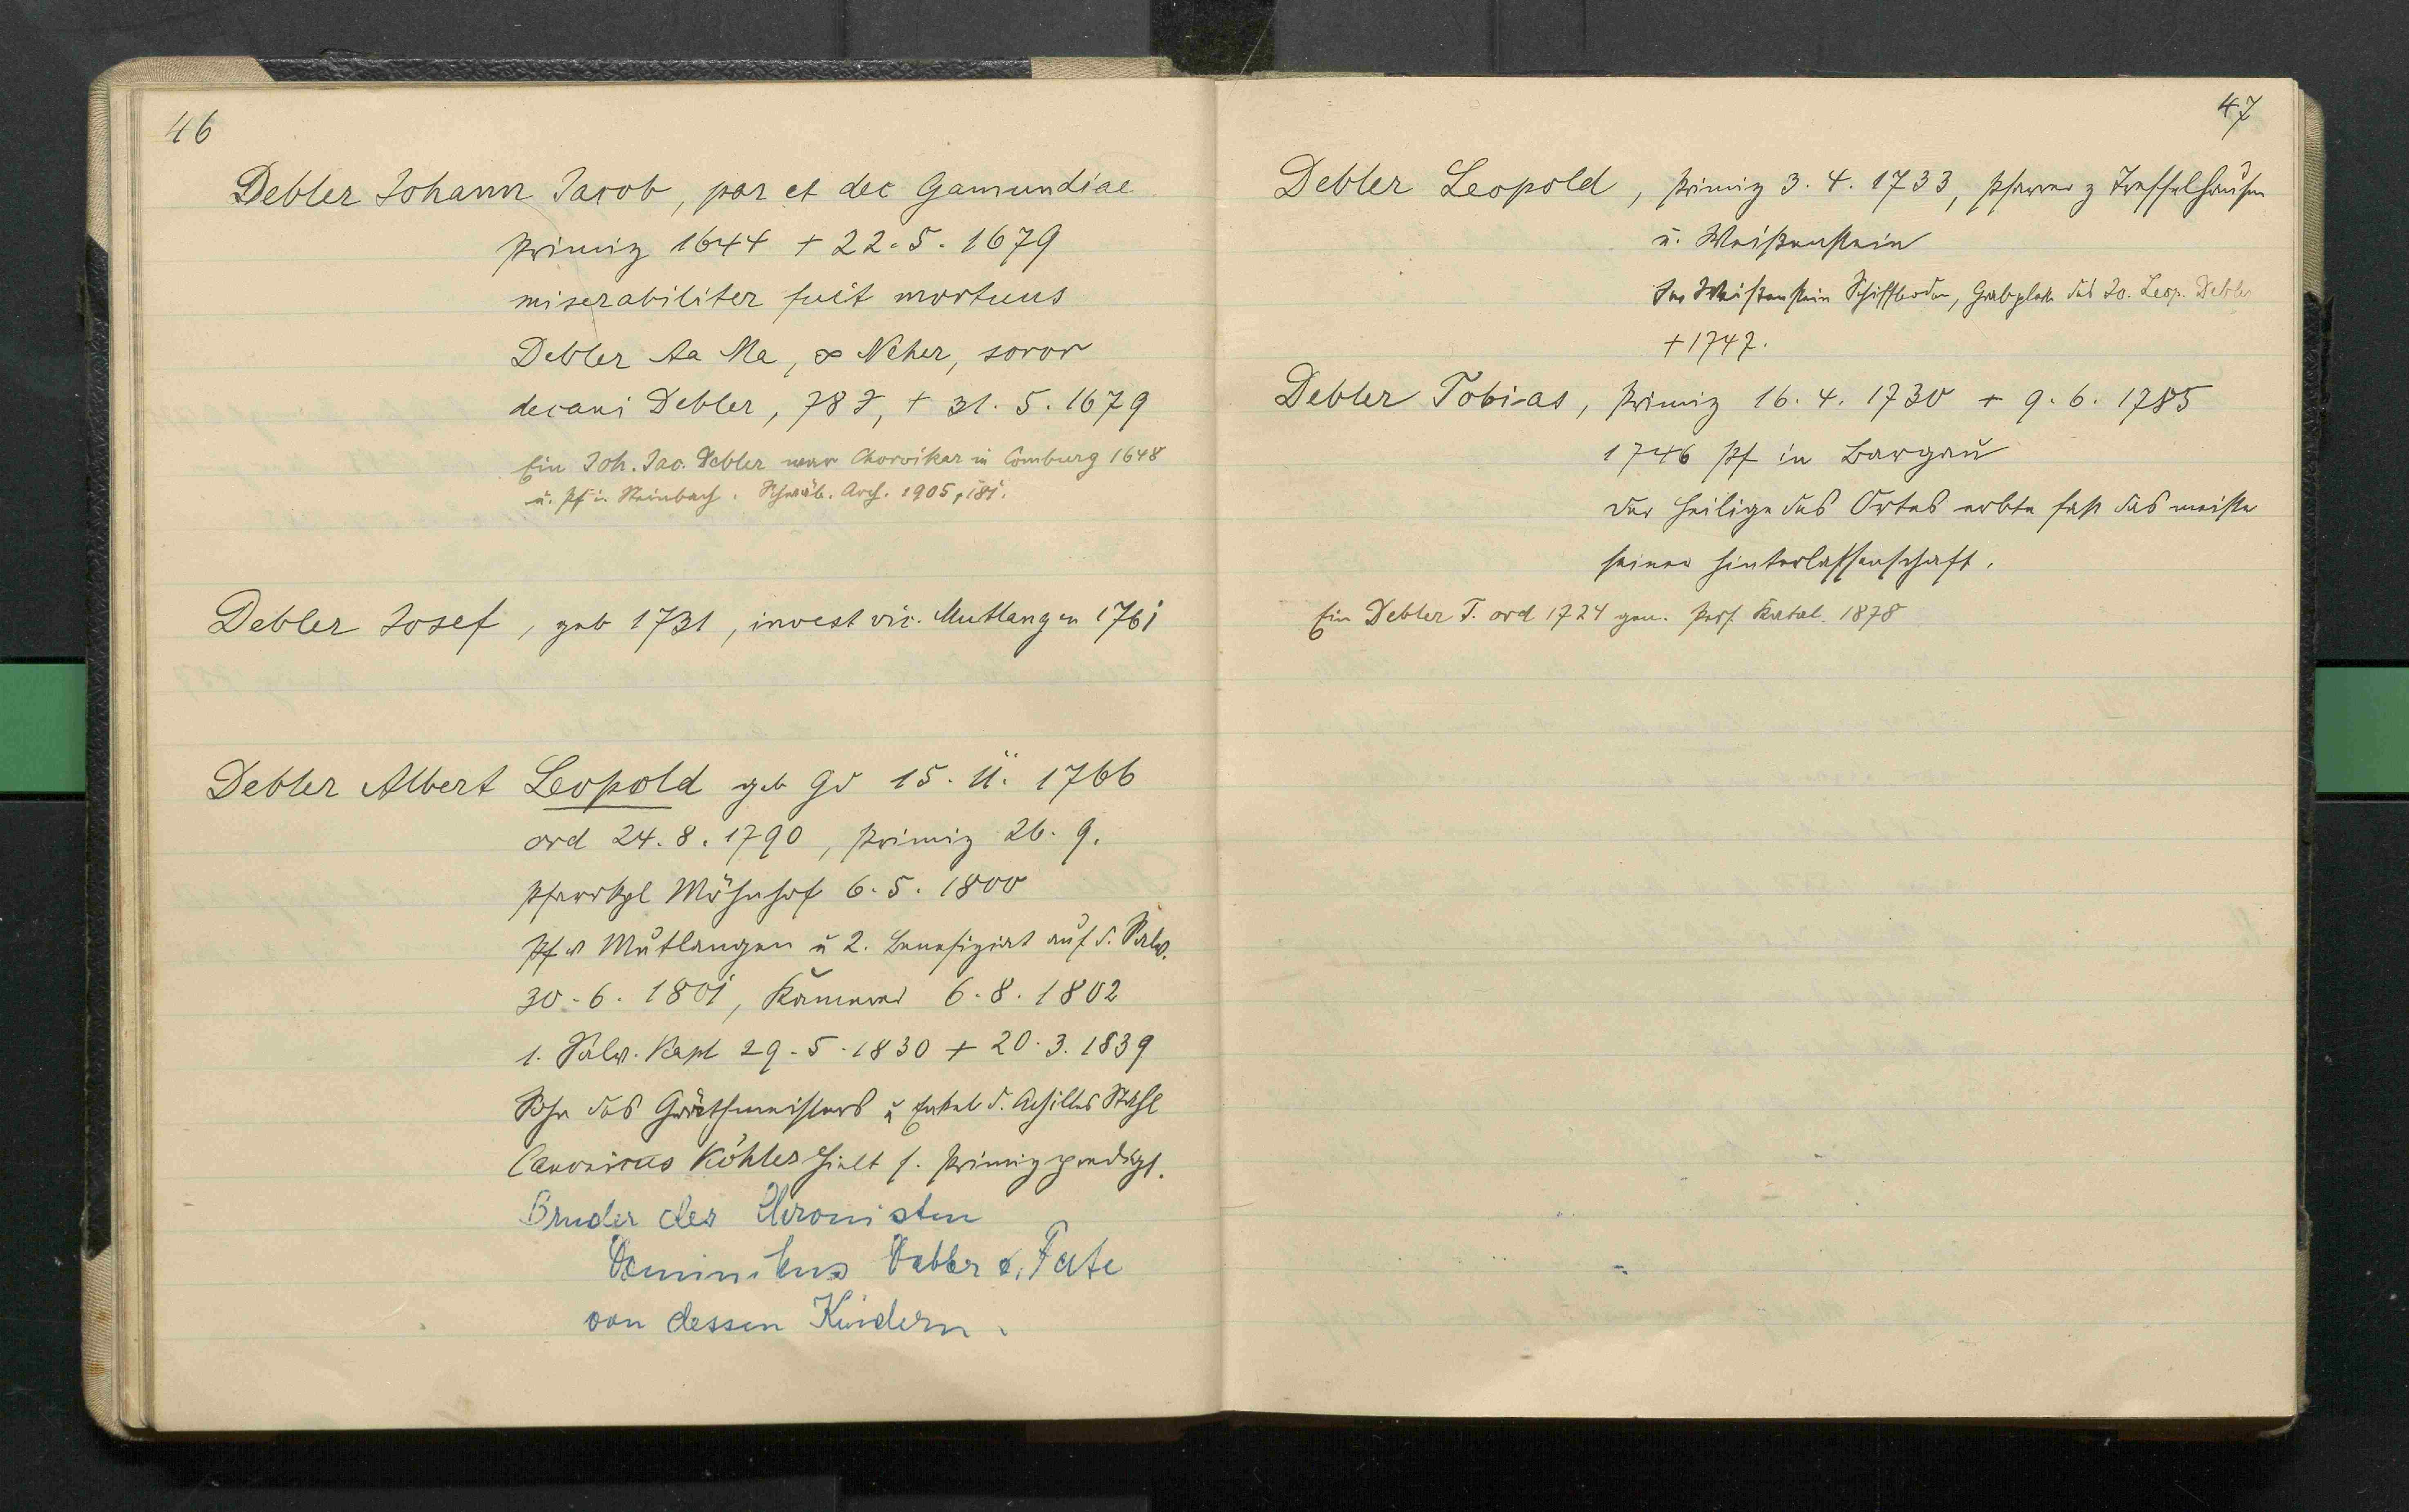 46
Debler Johann Jacob, par et dec Gamundiae
Primiz 1644 + 22.5.1679
miserabiliter fuit mortuus
Debler Aa Ma, ∞ Neher, soror
decani Debler, 78 J, + 31.5.1679
Ein Joh. Jac. Debler war Chorvikar in Comburg 1648
u. Pf in Steinbach. Schwäb. Arch. 1905, 181.
Debler Josef, geb 1731, invest vic. Mutlangen 1761
Debler Albert Leopold geb Gd 15.11.1766
ord 24.8.1790, Primiz 26.9.
Pfarrkpl Möhnhof 6.5.1800
Pf v Mutlangen u 2. Benefiziat auf d. Salv.
30.6.1801, Kämmerer 6.8.1802
1. Salv. Kapl 29.5.1830 + 20.3.1839
Sohn des Gräthmeisters u Enkel d. Achilles Stahl
Canonicus Köhler hielt s. Primizpredigt.
Bruder des Chronisten
Dominikus Debler u. Pate
von dessen Kindern.
47
Debler Leopold, Primiz 3.4.1733, Pfarrer z Treffelhausen
u. Weißenstein
In Weißenstein Schiffboden, Grabplatte des Jo. Leop. Debler
+ 1747.
Debler Tobias, Primiz 16.4.1730 + 9.6.1785
1746 Pf in Bargau
Der Heilige des Ortes erbte fast das meiste
seiner Hinterlassenschaft.
Ein Debler T. ord 1724 gen. Pers. Katal. 1878